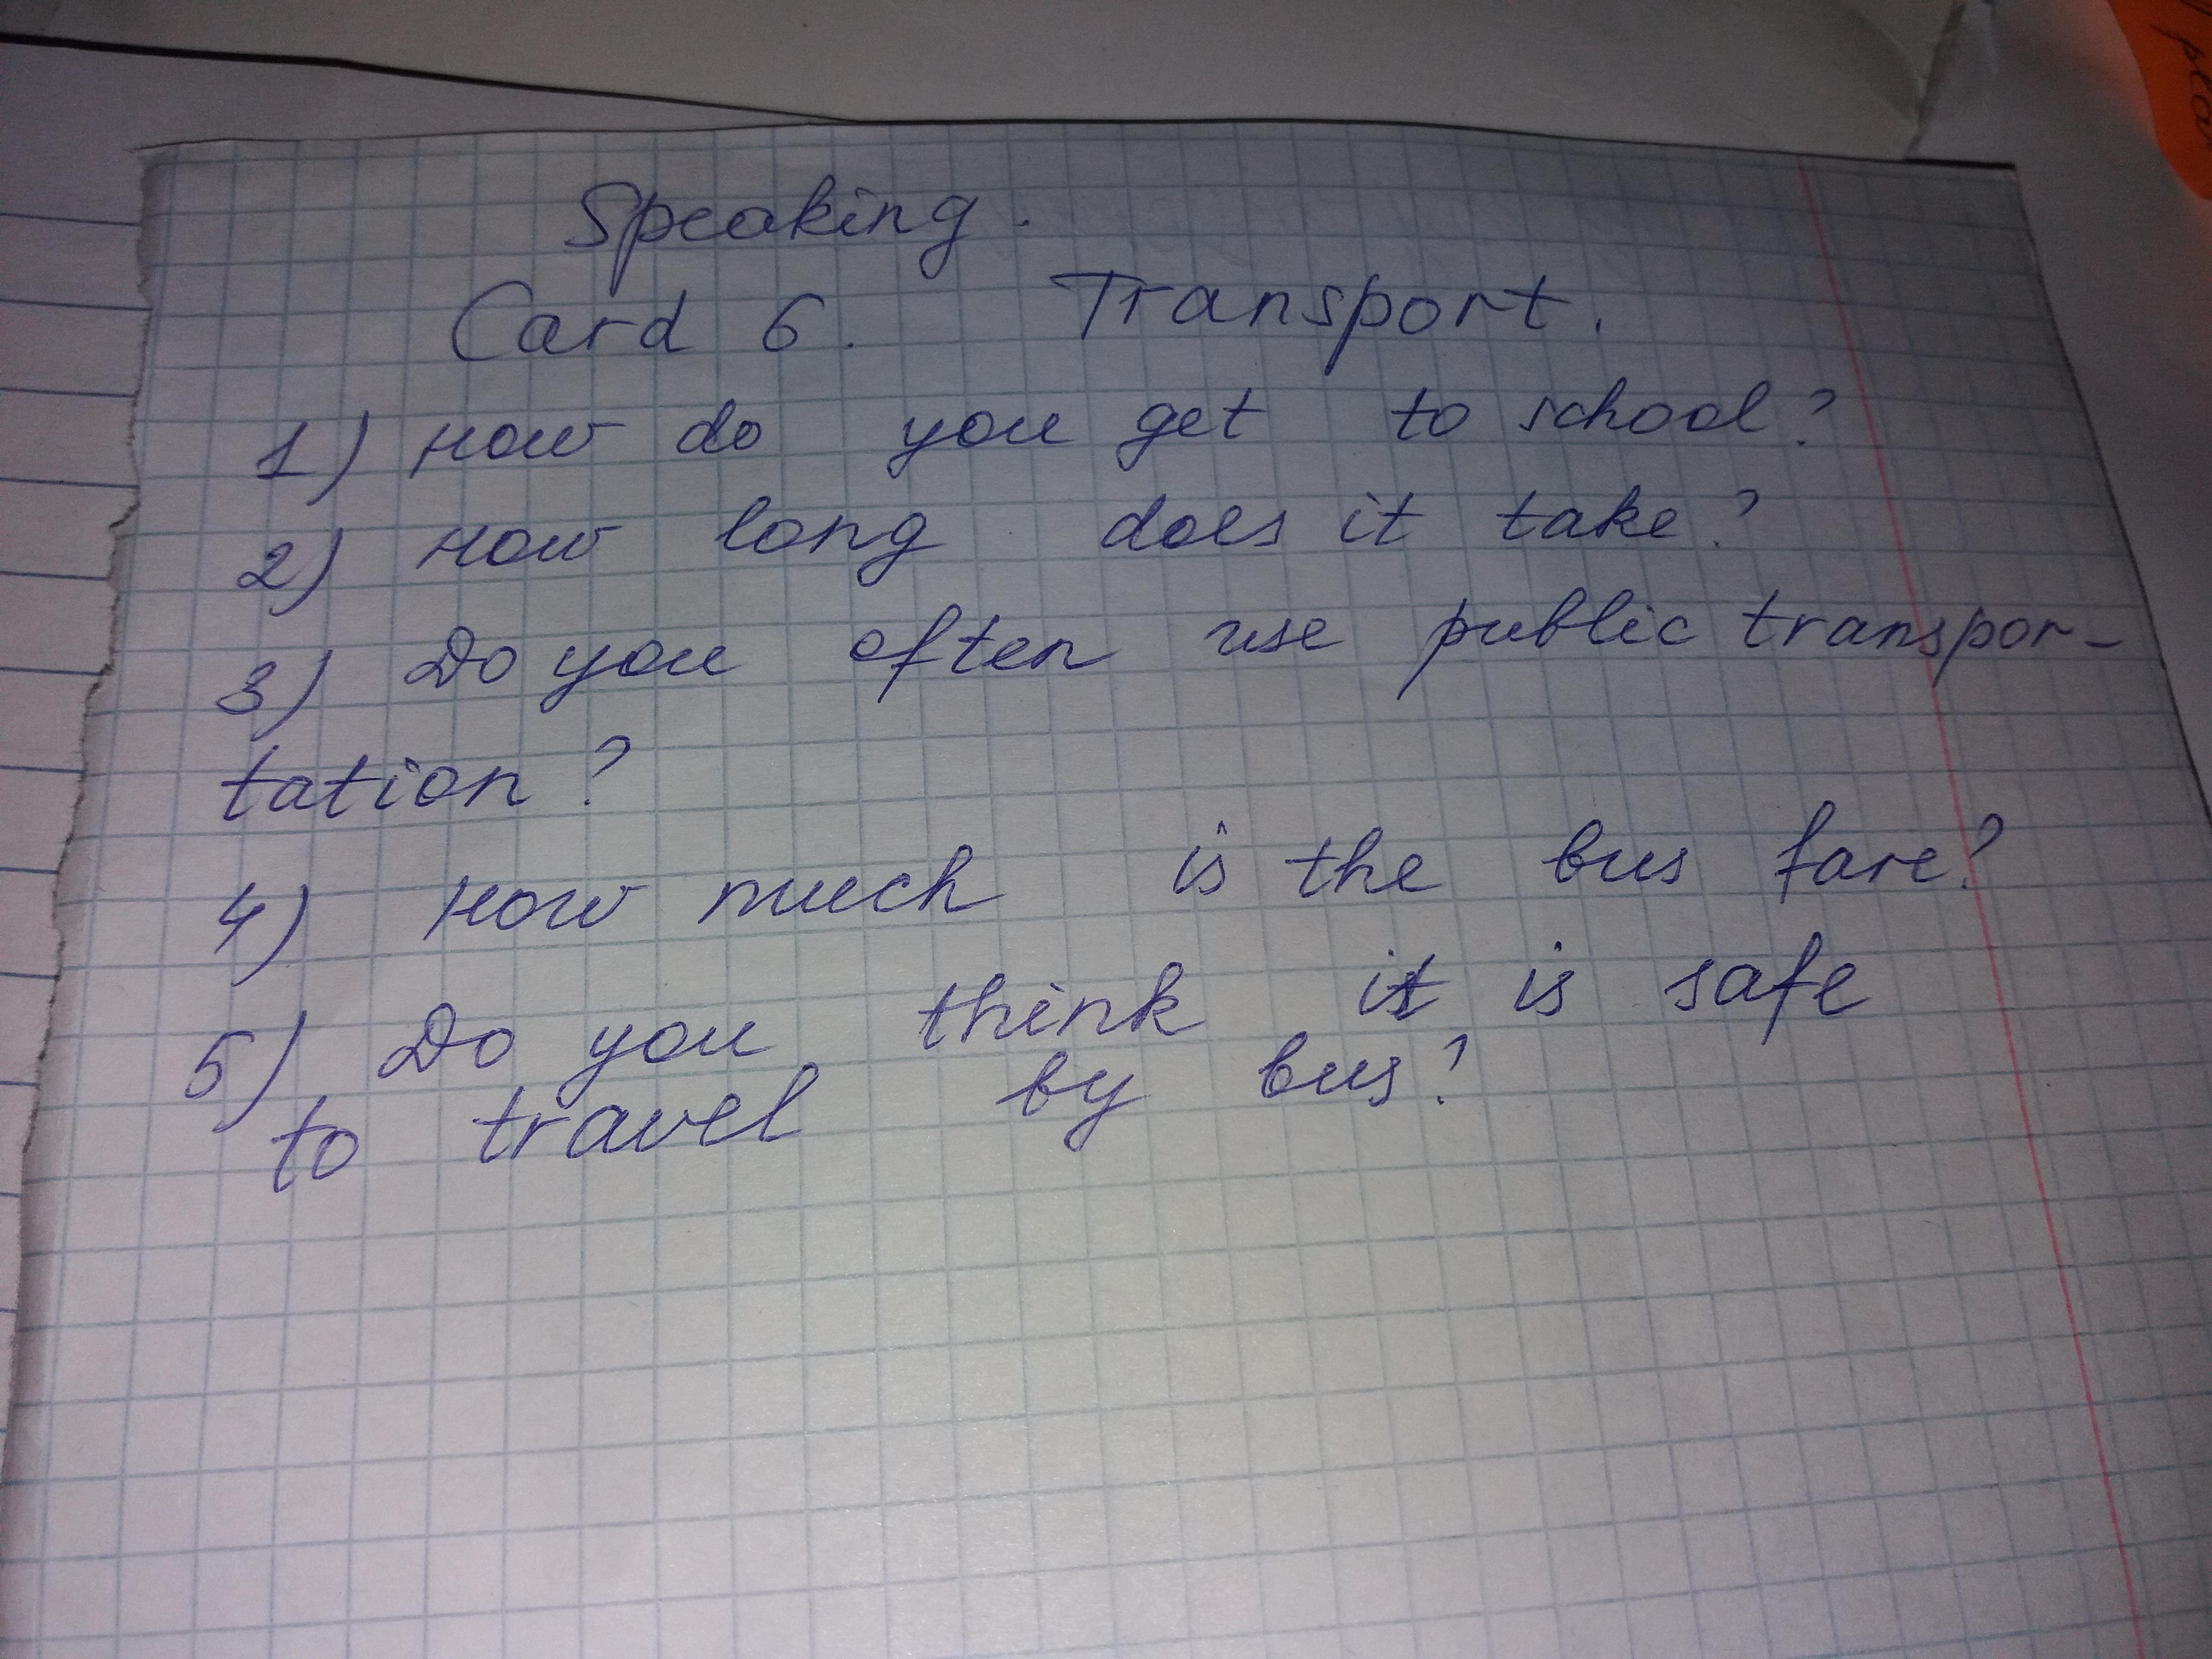 Speaking.
Card 6. Transport.
1) How do you get to school?
2) How long does it take?
3) Do you often use public transpor-
tation?
4) How much is the bus fare?
5) Do you think it is safe
to travel by bus?